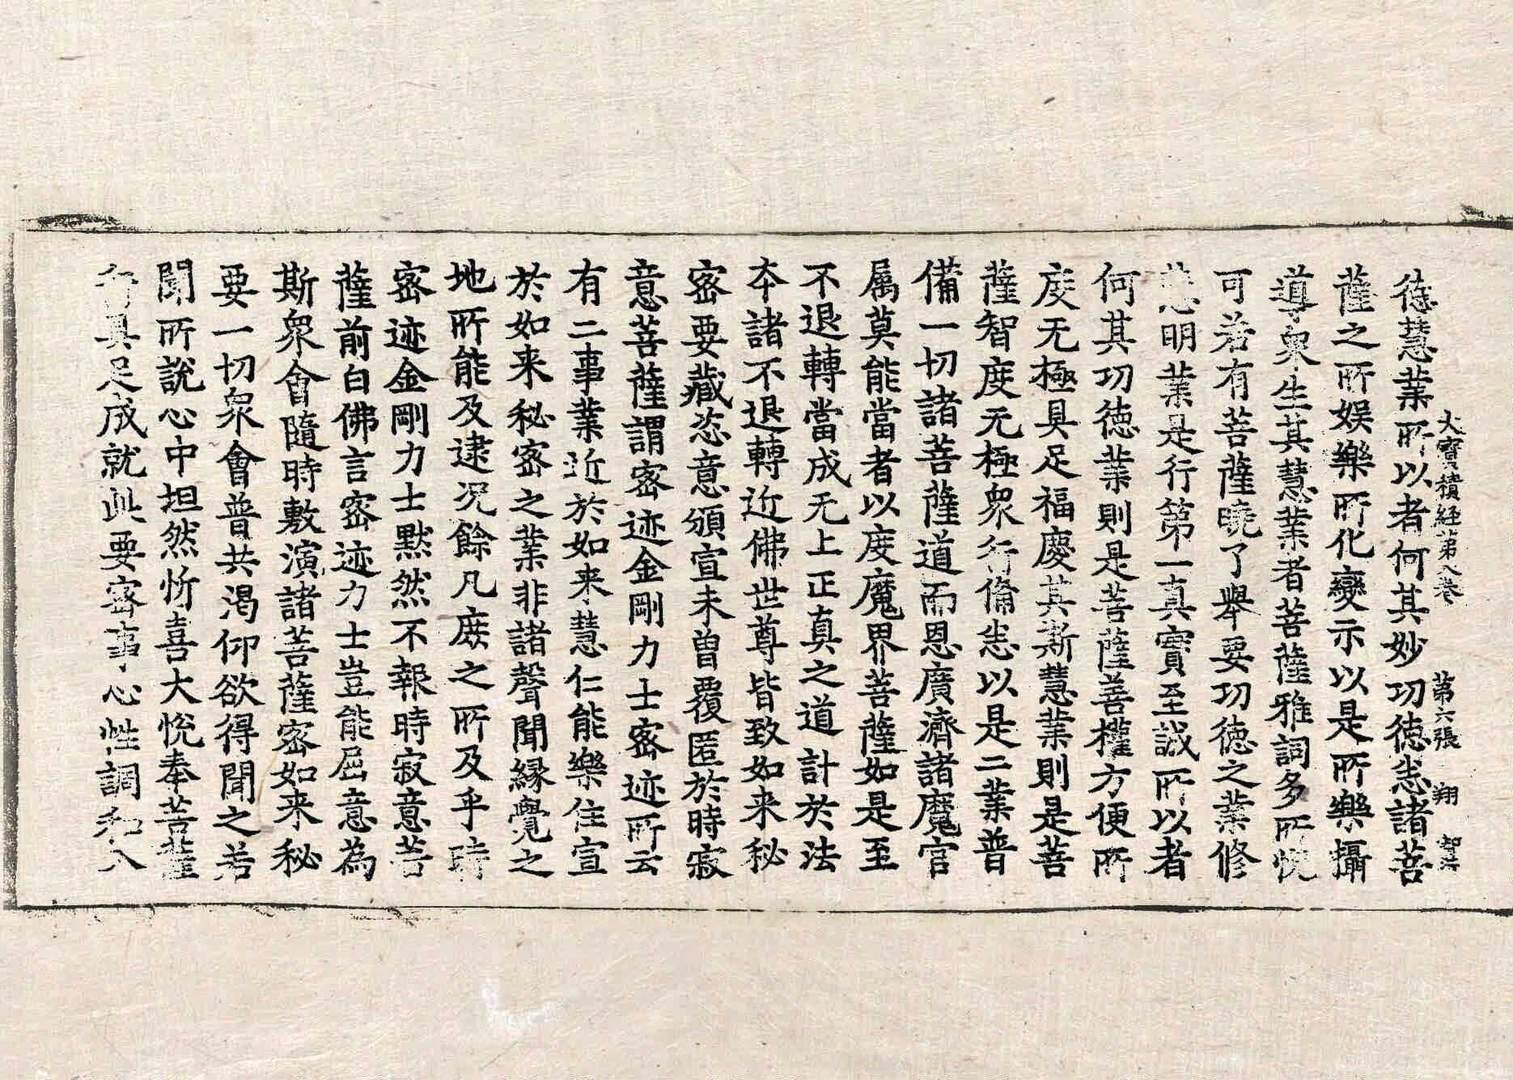 大寶積経第八卷 第六張 翔
德慧業所以者何其妙功徳恙諸菩
薩之所娯樂所化變示以是所樂攝
導衆生其慧業者菩薩雅詞多所悅
可若有菩薩曉了舉要功徳之業修
慧明業是行第一真實至誠所以者
何其功徳業則是菩薩善權方便所
度无極具足福慶其斯慧業則是菩
薩智度无極衆行俻恙以是二業普
備一切諸菩薩道而恩廣濟諸魔官
属莫能當者以度魔界菩薩如是至
不退轉當成无上正真之道計於法
夲諸不退轉近佛世尊皆致如来秘
密要蔵恣意頒宣未曽覆匿於時寂
意菩薩謂密迹金剛力士密迹所云
有二事業近於如来慧仁能樂住宣
於如来秘密之業非諸聲聞縁覺之
地所能及逮况餘凡庶之所及乎時
密迹金剛力士黙然不報時寂意菩
薩前白佛言密迹力士豈能屈意為
斯衆會隨時敷演諸菩薩密如来秘
要一切衆會普共渇仰欲得聞之若
聞所說心中坦然忻喜大悅奉菩薩
行具足成就此要密事心性調和入